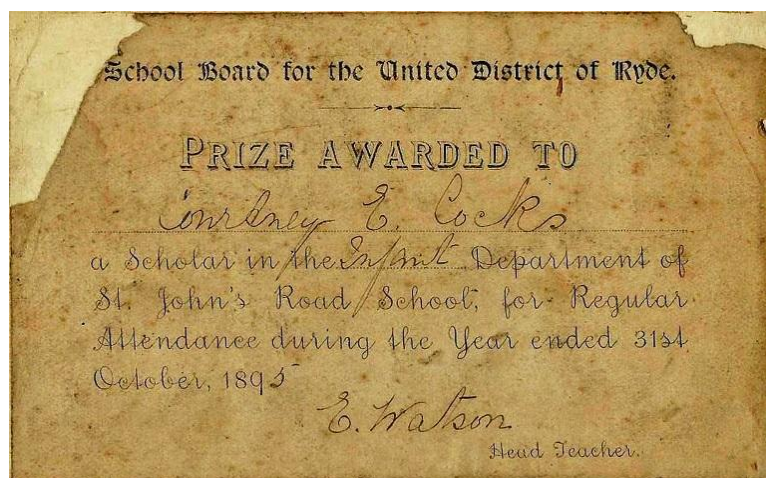 School Board for the United District of Ryde.
PRIZE AWARDED TO
Courtney E. Cocks
a Scholar in the Infant Department of
St. John's Road School, for Regular
Attendance during the Year ended 31st
October, 1895
E. Watson
Head Teacher.